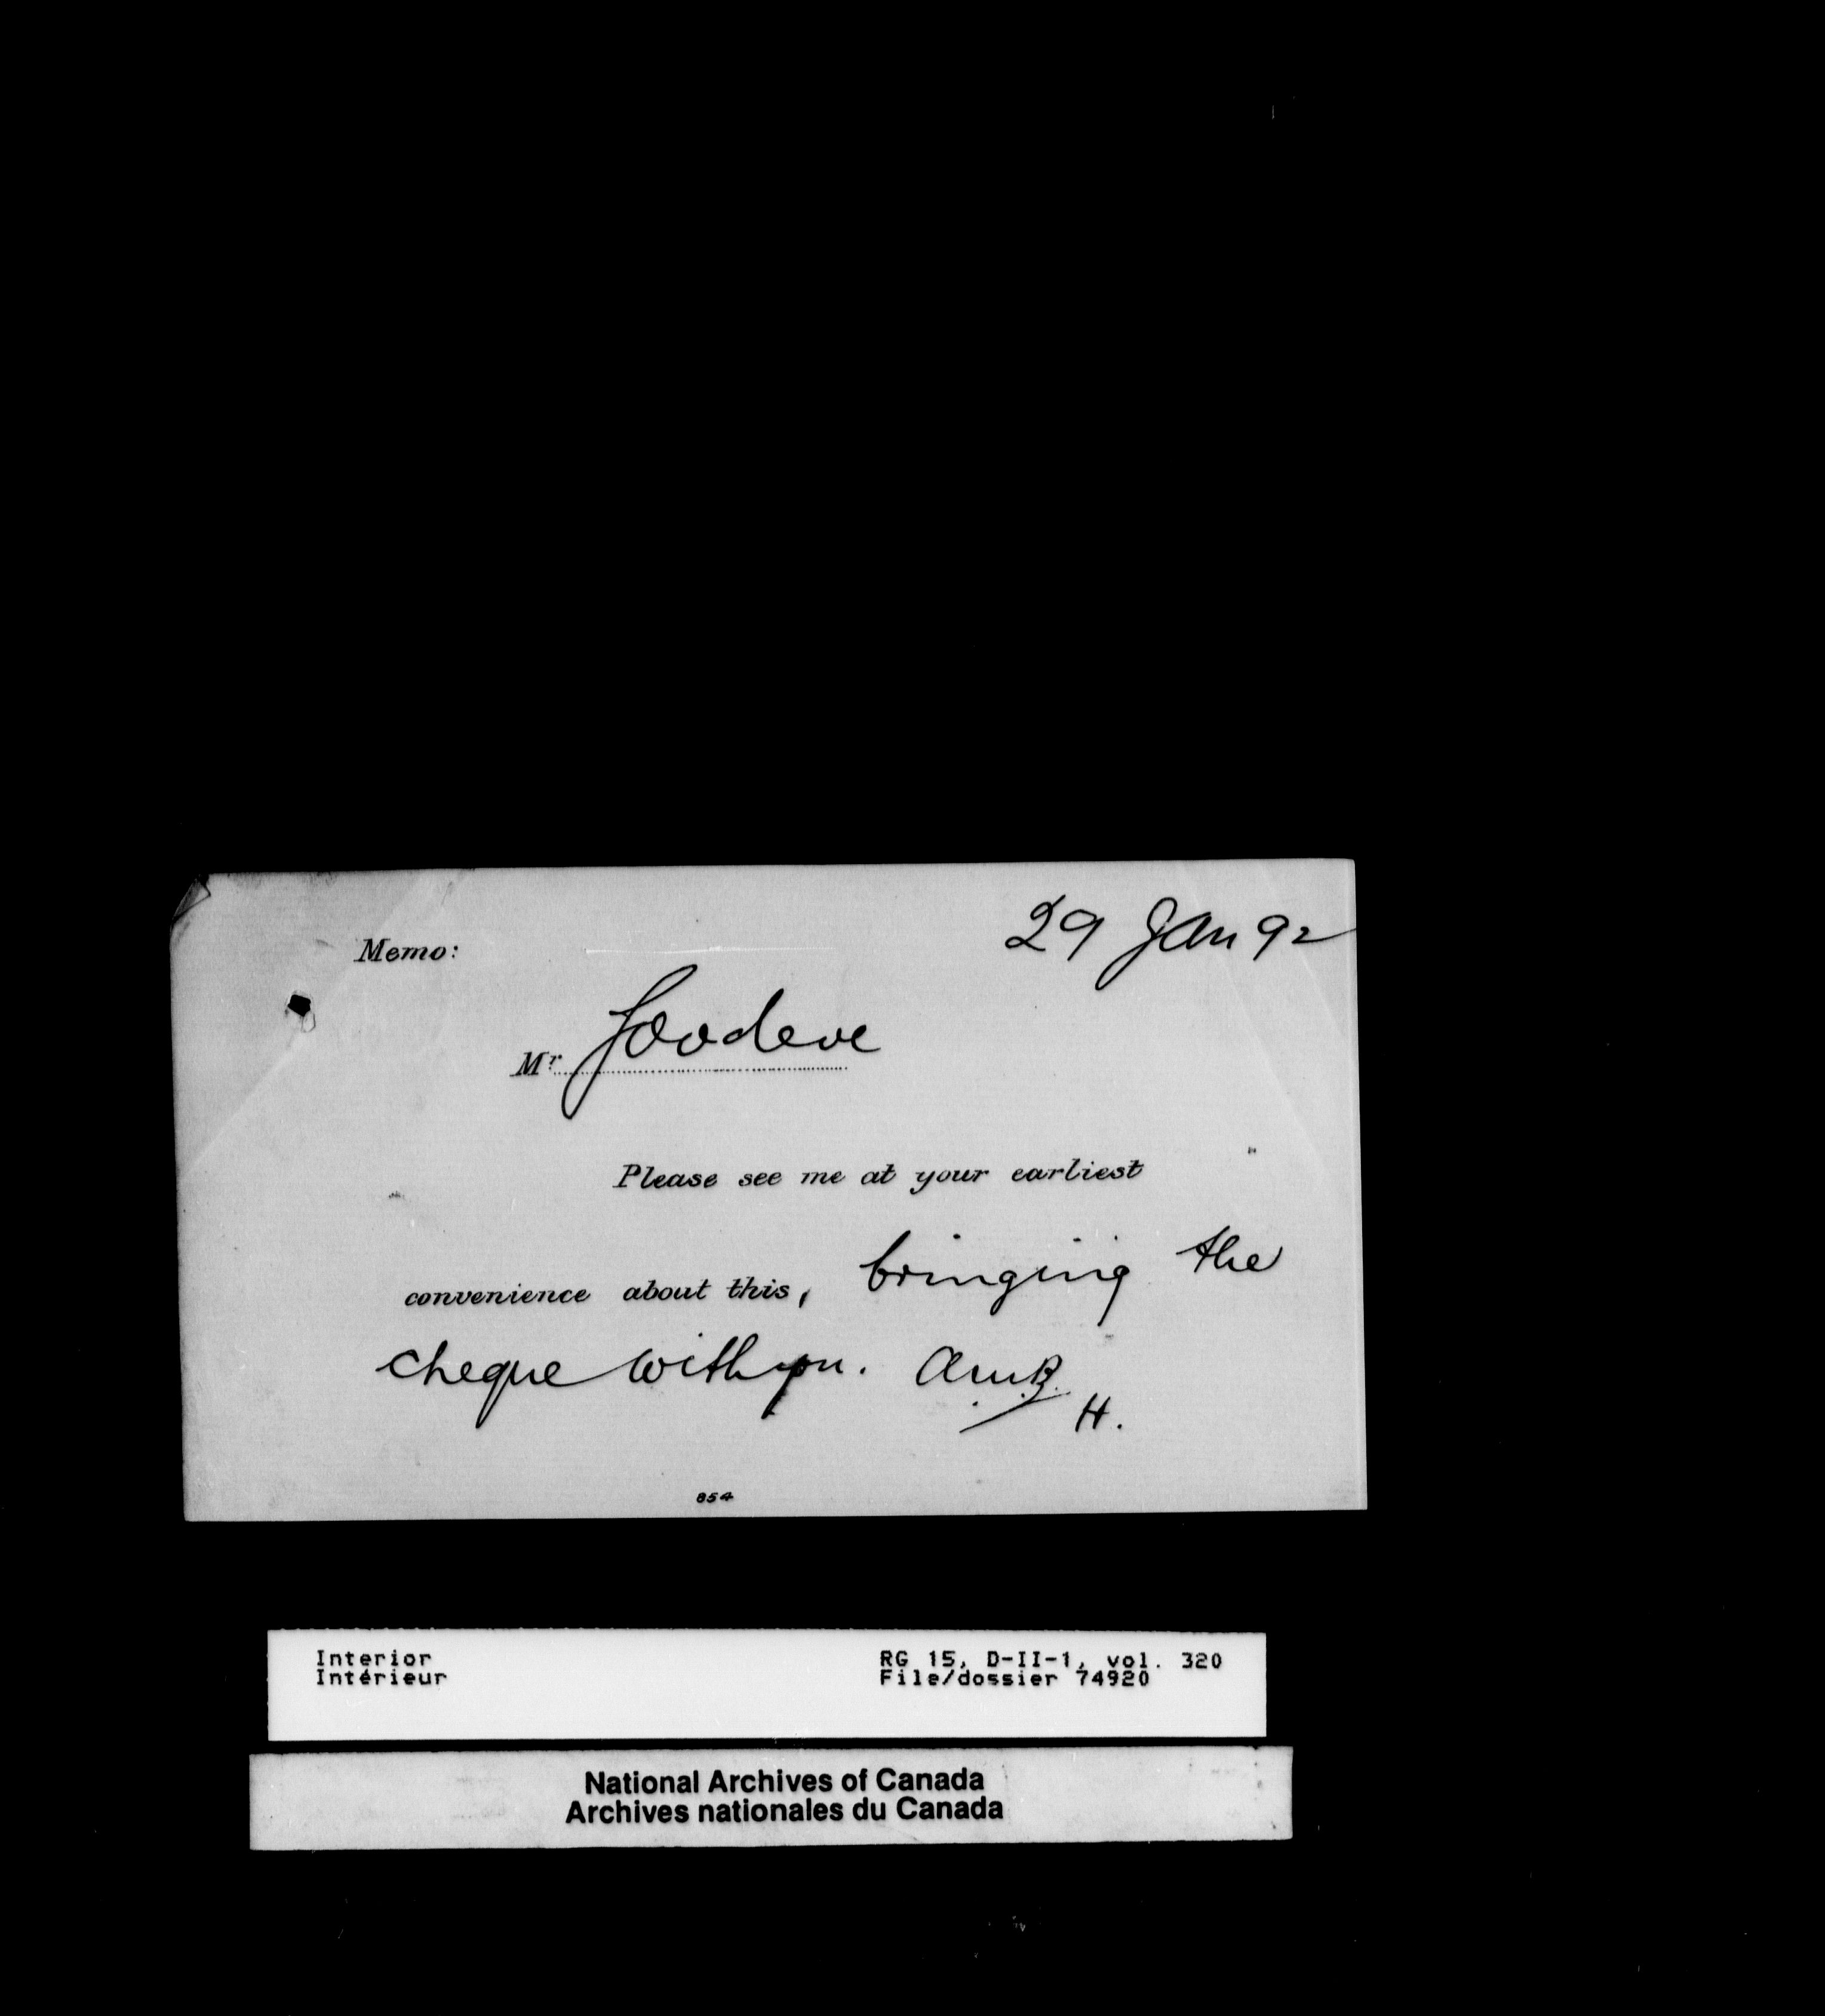 29 Jan 92
Memo:
Mr. Goodeve
Please see me at your earliest
convenience about this, bringing the
cheque with you.
H.
854
Interior
Intérieur
RG 15, D-II-1, vol. 320
File/dossier 74920
National Archives of Canada
Archives nationales du Canada